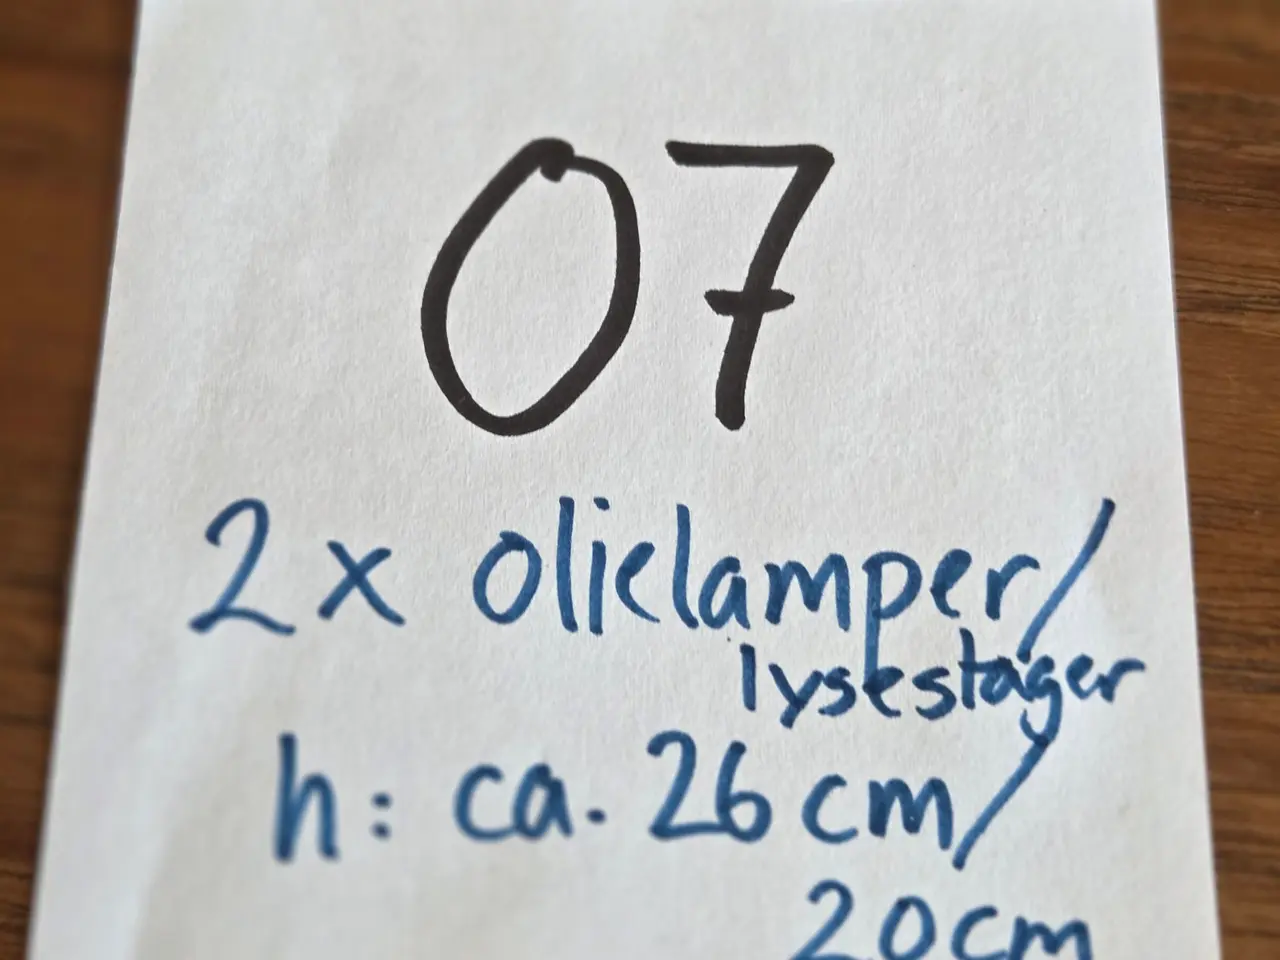 07
2x olielamper/
lysestager
h: ca. 26 cm/
20cm